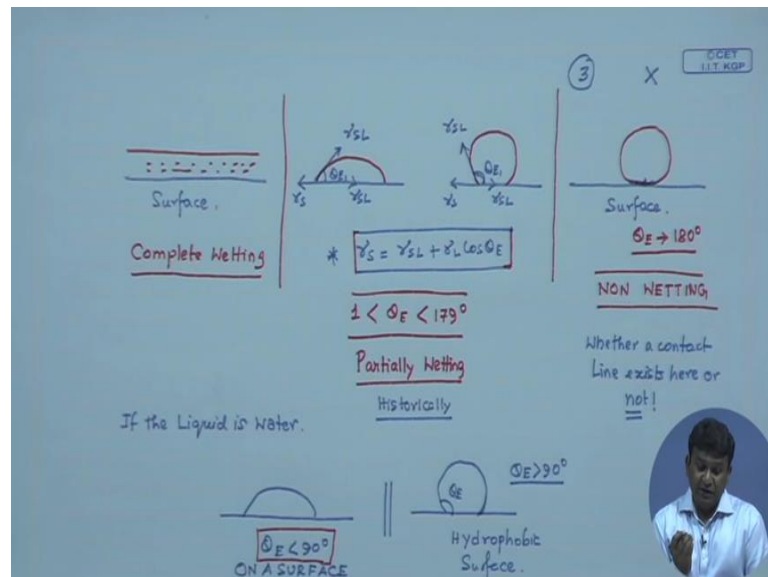 ③ X
©CET
I.I.T. KGP
γSL
θE1
γS
γSL
γSL
θE1
γS
γSL
Surface.
Complete Wetting
* γS = γSL + γL CosθE
1 < θE < 179°
Partially Wetting
Historically
Surface.
θE → 180°
NON WETTING
Whether a contact
Line exists here or
not!
If the Liquid is Water.
θE < 90°
ON A SURFACE
θE
θE > 90°
Hydrophobic
Surface.